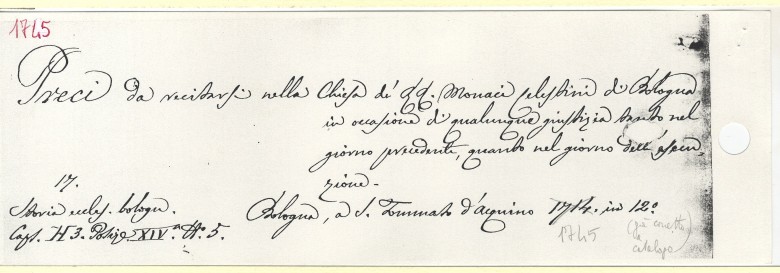 1745
Preci da recitarsi nella Chiesa de' RR. Monaci Celestini di Bologna
in occasione di qualunque giustizia tanto nel
giorno precedente, quanto nel giorno dell'esecu_
zione.
17.
Storia eccles. bologn.
Bologna, a S. Tommaso d'Acquino 1714. in 12.º
Caps. H 3. Posiz. XIV.ª N.º 5.
1745
(già corretto
da
catalogo)